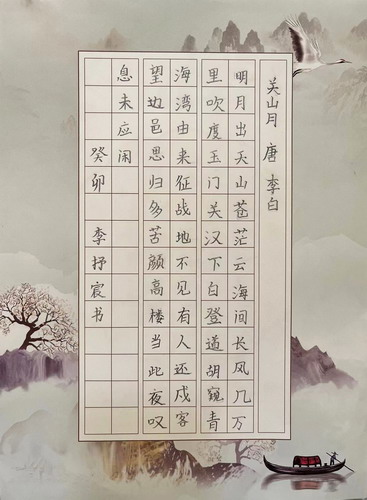 关山月 唐 李白
明月出天山苍茫云海间长风几万
里吹度玉门关汉下白登道胡窥青
海湾由来征战地不见有人还戍客
望边邑思归多苦颜高楼当此夜叹
息未应闲
癸卯 李抒宸书